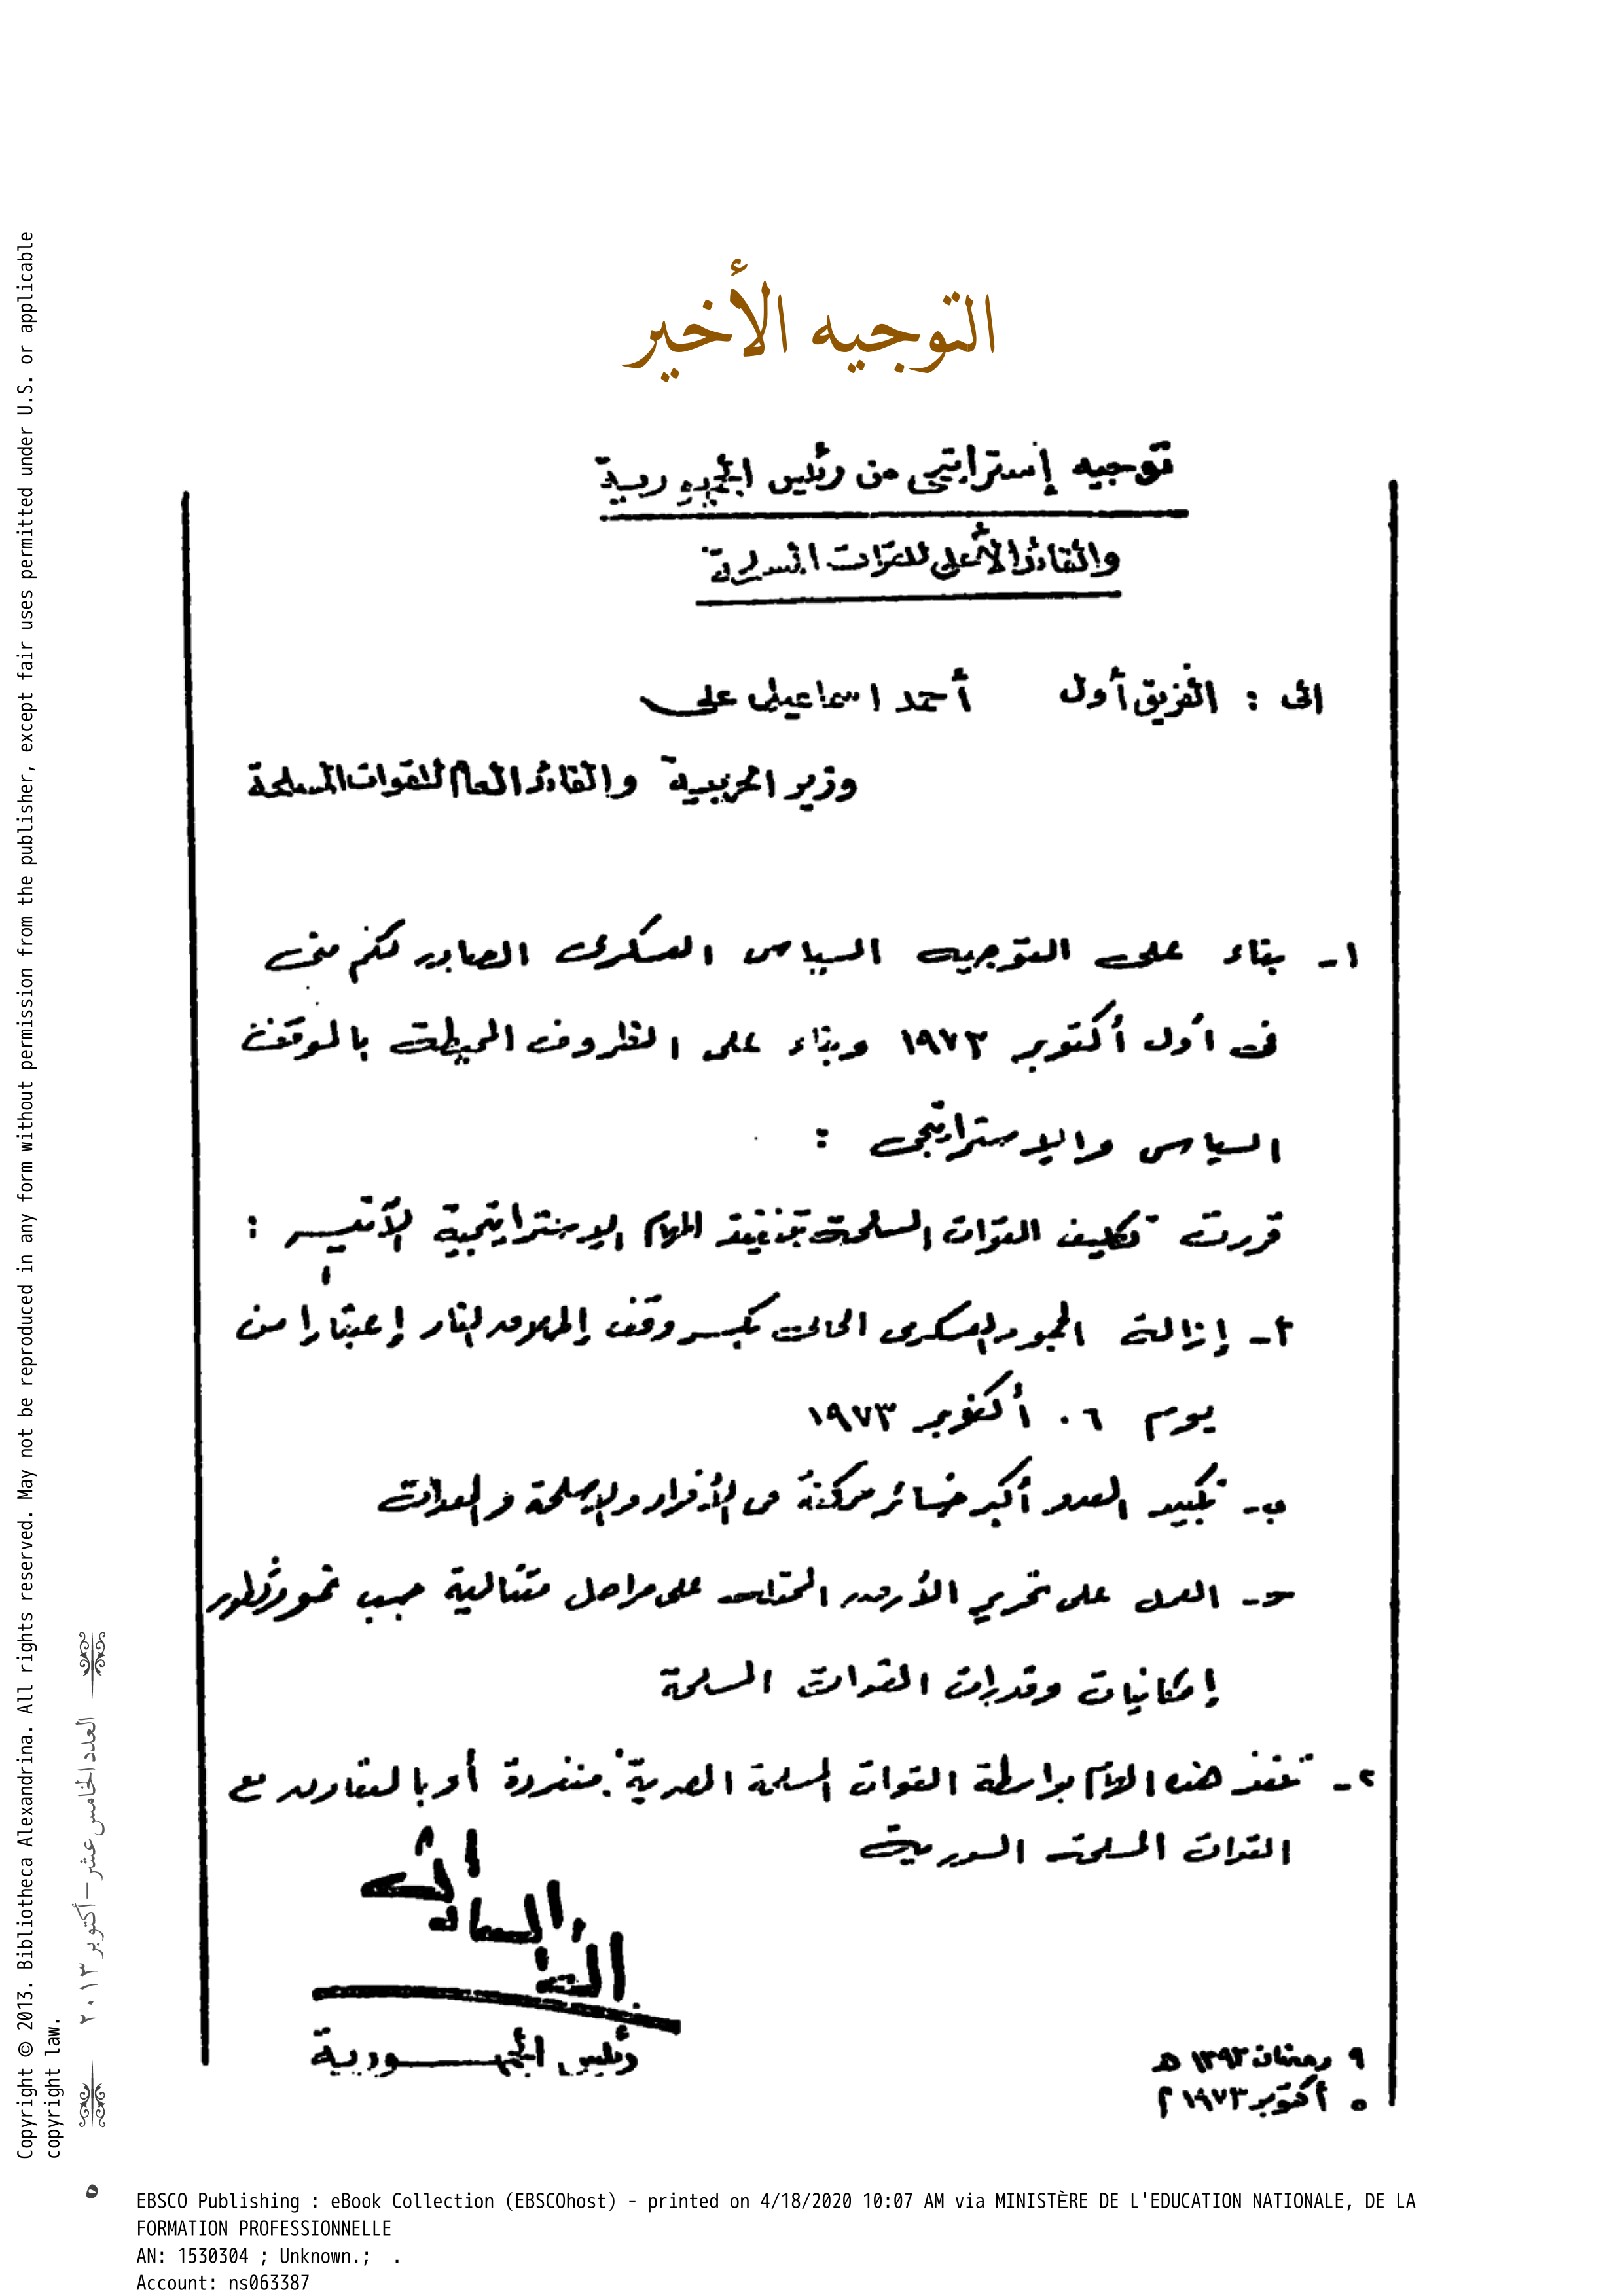 التوجيه الأخير
توجيه إستراتيجى من رئيس الجمهورية
والقائد الأعلى للقوات المسلحة
الى : الفريق أول أحمد اسماعيل على
وزير الحربية والقائد العام للقوات المسلحة
١- بناء على التوجيه السياسى العسكرى الصادر لكم منى
فى أول أكتوبر ١٩٧٣ وبناء على الظروف المحيطة بالموقف
السياسى والإستراتيجى :
قررت تكليف القوات المسلحة بتنفيذ المهام الإستراتيجية الآتية :
أ- إزالة الجمود العسكرى الحالى بكسر وقف إطلاق النار إعتبارا من
يوم ٠٦ أكتوبر ١٩٧٣
ب- تكبيد العدو أكبر خسائر ممكنة من الأفراد والأسلحة والمعدات
ج- العمل على تحرير الأرض المحتلة على مراحل متتالية حسب نمو وتطور
إمكانيات وقدرات القوات المسلحة
٢- تنفذ هذه المهام بواسطة القوات المسلحة المصرية منفردة أو بالتعاون مع
القوات المسلحة السورية
أنور السادات
رئيس الجمهورية
٩ رمضان ١٣٩٣ هـ
٥ أكتوبر ١٩٧٣ م
العدد الخامس عشر – أكتوبر ٢٠١٣
٥
Copyright © 2013. Bibliotheca Alexandrina. All rights reserved. May not be reproduced in any form without permission from the publisher, except fair uses permitted under U.S. or applicable
copyright law.
EBSCO Publishing : eBook Collection (EBSCOhost) - printed on 4/18/2020 10:07 AM via MINISTÈRE DE L'EDUCATION NATIONALE, DE LA
FORMATION PROFESSIONNELLE
AN: 1530304 ; Unknown.; .
Account: ns063387